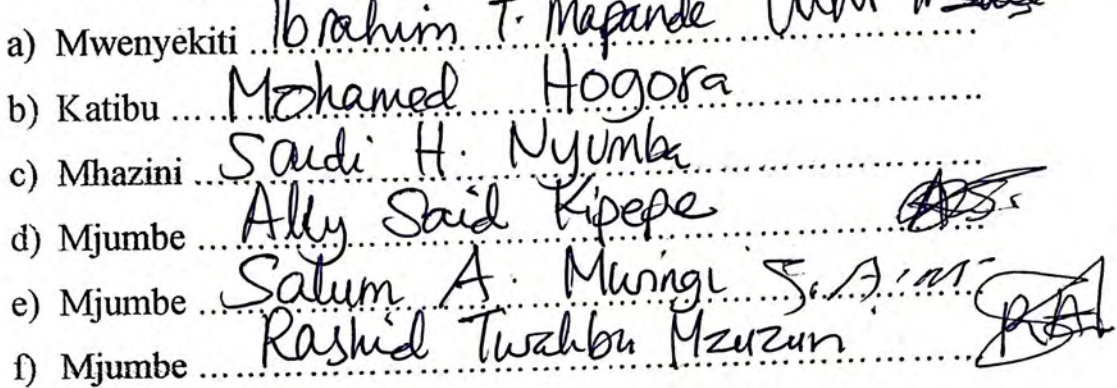 a) Mwenyekiti Ibrahim T. Mapande
b) Katibu Mohamed Hogora
c) Mhazini Saidi H. Nyumba
d) Mjumbe Ally Said Kipepe
e) Mjumbe Salum A. Mwingi S.A.M
f) Mjumbe Rashid